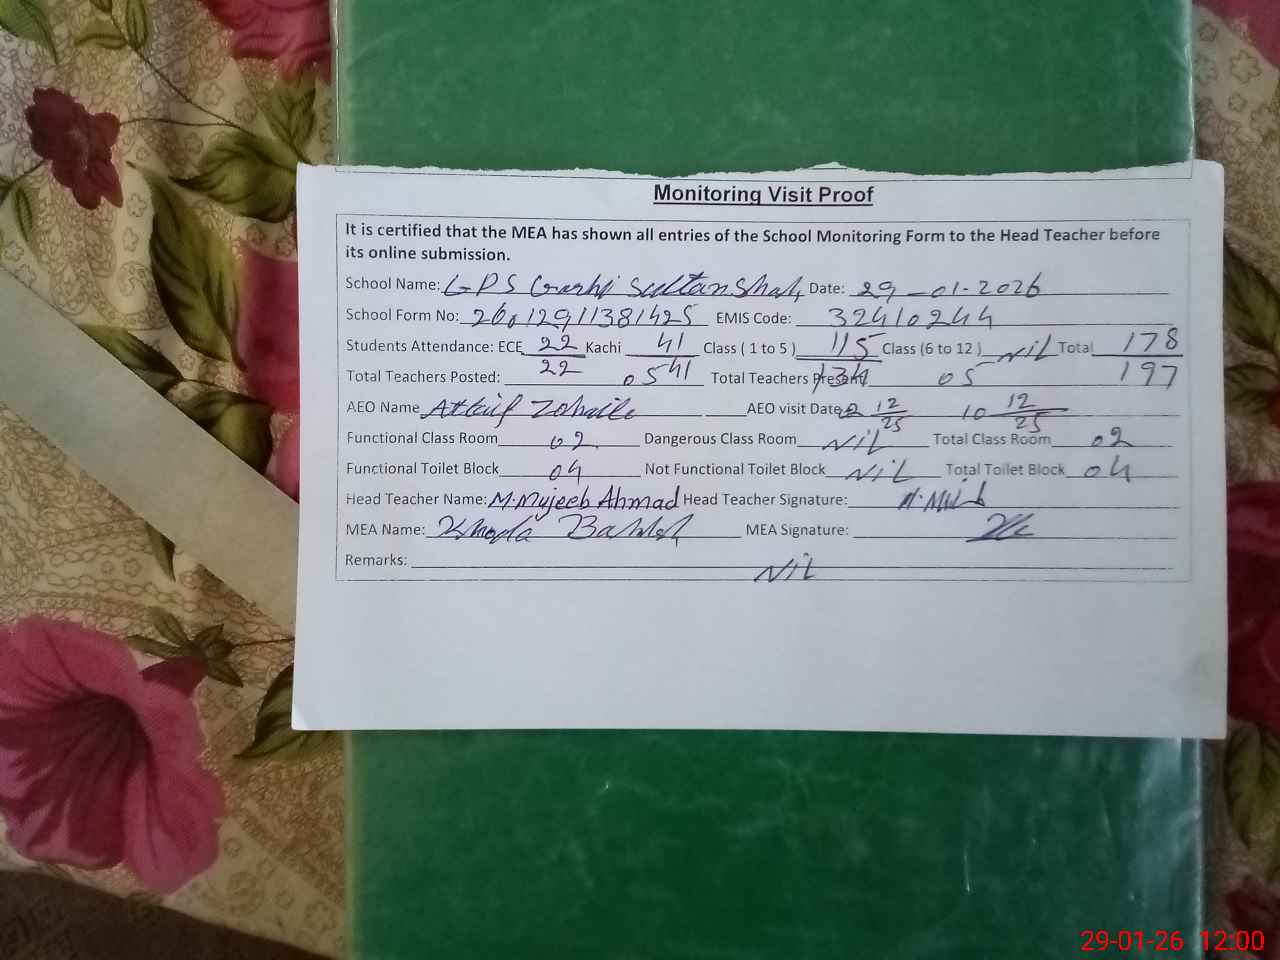 Monitoring Visit Proof
It is certified that the MEA has shown all entries of the School Monitoring Form to the Head Teacher before
its online submission.
School Name: GPS Garhi Sultan Shah Date: 29-01-2026
School Form No: EMIS Code: 32410244
Students Attendance: ECE 22/22 Kachi 41/41 Class ( 1 to 5 ) 115/134 Class (6 to 12 ) NiL Total 178/197
Total Teachers Posted: 05 Total Teachers Present 05
AEO Name AEO visit Date 12/25 10 12/25
Functional Class Room 02 Dangerous Class Room NiL Total Class Room 02
Functional Toilet Block 04 Not Functional Toilet Block NiL Total Toilet Block 04
Head Teacher Name: M.Mujeeb Ahmad Head Teacher Signature:
MEA Name: MEA Signature:
Remarks: NiL
29-01-26 12:00